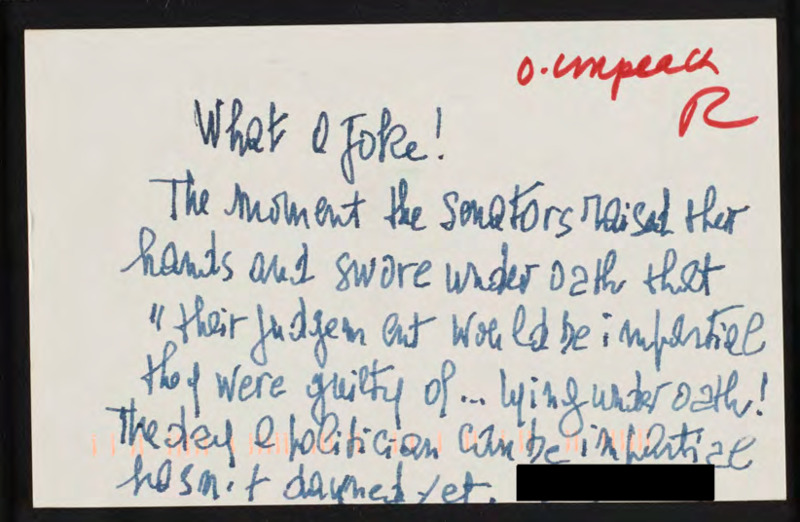 O. impeach
R
What a Joke!
The moment the Senators raised ther
hands and swore under oath that
"their judgem ent would be impartial
they were guilty of... lying under oath!
The day a politician can be impartial
hasn't dawned yet.